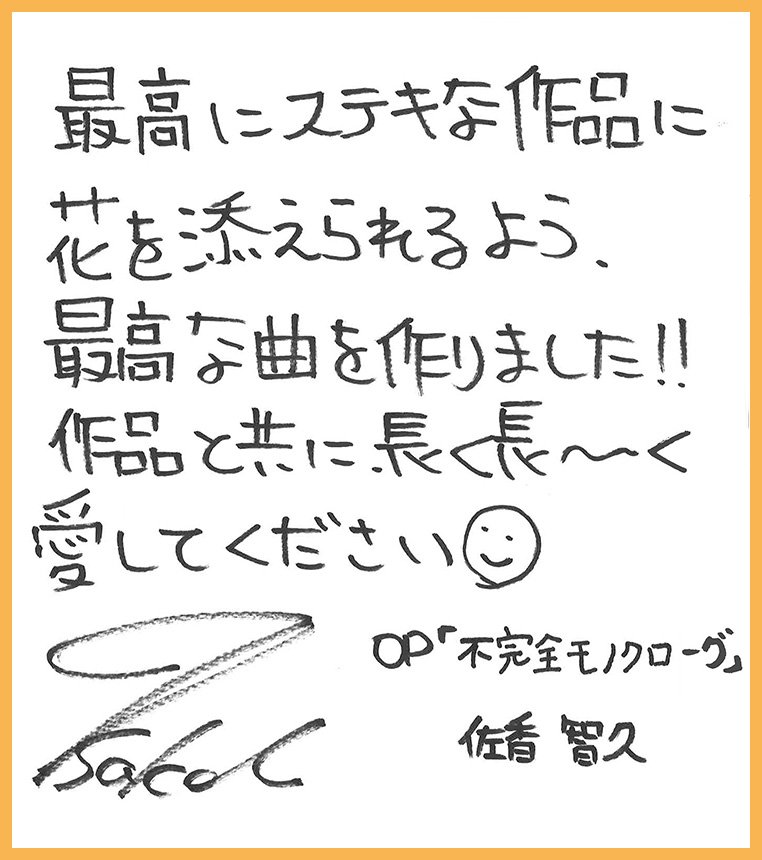 最高にステキな作品に
花を添えられるよう、
最高な曲を作りました!!
作品と共に、長く長〜く
愛してください
OP「不完全モノクローグ」
佐香 智久